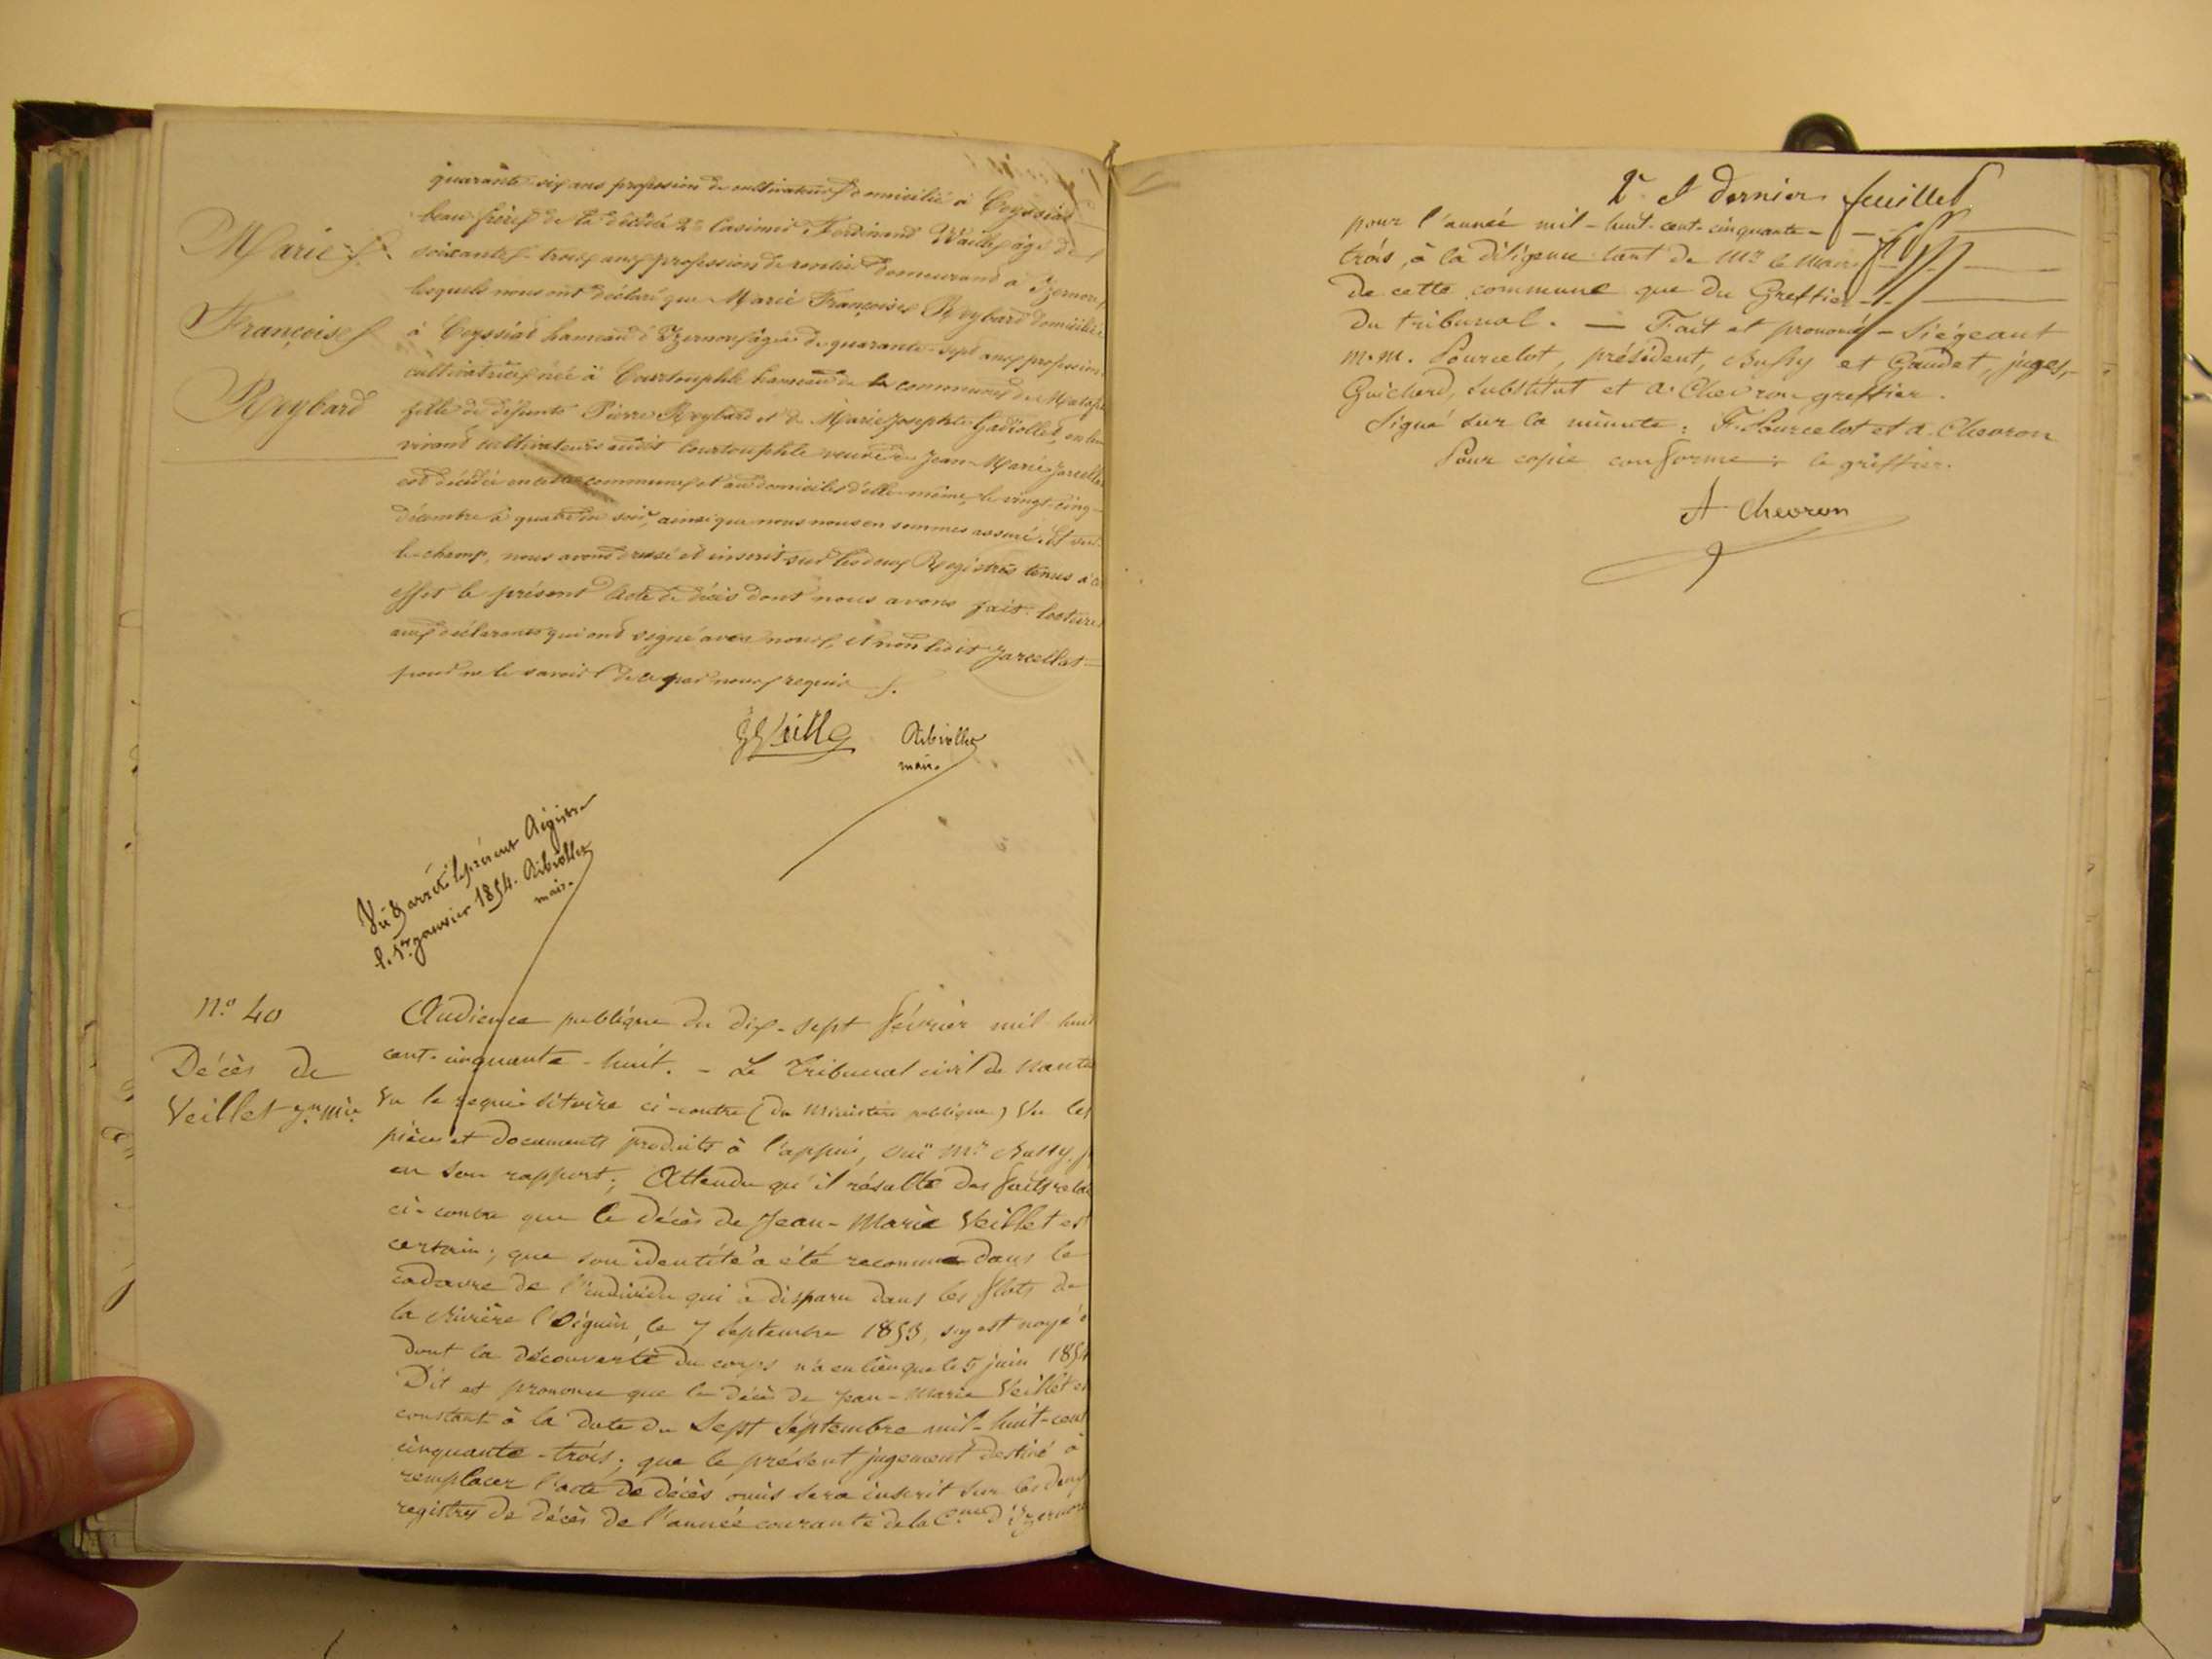 Marie
Françoise
Reybard
quarante-six ans profession de cultivateur domicilié à Ceyssiat
beau frère de la décédée 2° Casimir Ferdinand Vaille âgé de
soixante-trois ans profession de rentier demeurant à Izernore
lesquels nous ont déclaré que Marie Françoise Reybard domiciliée
à Ceyssiat hameau d'Izernore âgée de quarante-sept ans profession
cultivatrice née à Courtouphle hameau de la commune de Matafe
fille de défunts Pierre Reybard et de Marie Josephte Gadiollet, en leur
vivant cultivateurs audit Courtouphle veuve de Jean-Marie Jarcellat
est décédée en cette commune et au domicile d'elle-même, le vingt-cinq
décembre à quatre du soir, ainsi que nous nous en sommes assuré. Et sur
le champ, nous avons dressé et inscrit sur les deux Registres tenus à cet
effet le présent acte de décès dont nous avons fait lecture
aux déclarants qui ont signé avec nous, et non ledit Jarcellat
pour ne le savoir de ce par nous requis.
Vaille Ribiollet
maire
Vu & arrêté le présent Régistre
le 1er janvier 1854. Ribiollet
maire
N° 40
Décès de
Veillet Jn Mie
Audience publique du dix-sept février mil huit
cent-cinquante-huit. - Le Tribunal civil de Nantua
Vu le requisitoire ci-contre (du Ministère publique) Vu les
pièces et documents produits à l'appui, ouï Mr Bussy, j
en son rapport; Attendu qu'il résulte des faits relat
ci-contre que le décès de Jean-Marie Veillet est
certain; que son identité a été reconnue dans le
cadavre de l'individu qui a disparu dans les flots de
la rivière l'Oignin, le 7 septembre 1853, s'y est noyé &
dont la découverte du corps n'a eu lieu que le 5 juin 1854
Dit et prononce que le décès de Jean-Marie Veillet est
constant à la date du Sept Septembre mil-huit-cent
cinquante-trois; que le présent jugement destiné à
remplacer l'acte de décès omis sera inscrit sur les deux
registres de décès de l'année courante de la Cne d'Izernore
2e et dernier feuillet
pour l'année mil-huit-cent-cinquante-
trois, à la diligence tant de Mr le Maire
de cette commune que du Greffier
du tribunal. — Fait et prononcé - Siégeant
M.M. Pourcelot, président, Bussy et Gaudet, juges,
Guicherd, substitut et A. Chevron greffier.
Signé sur la minute: F. Pourcelot et A. Chevron
Pour copie conforme: le greffier.
A Chevron